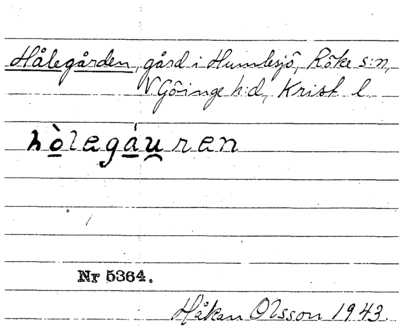 Hålegården, gård i Humlesjö, Röke s:n,
V Göinge h:d, Krist. l.
hòlegáu̯ren
Nr 5364.
Håkan Olsson 1943.